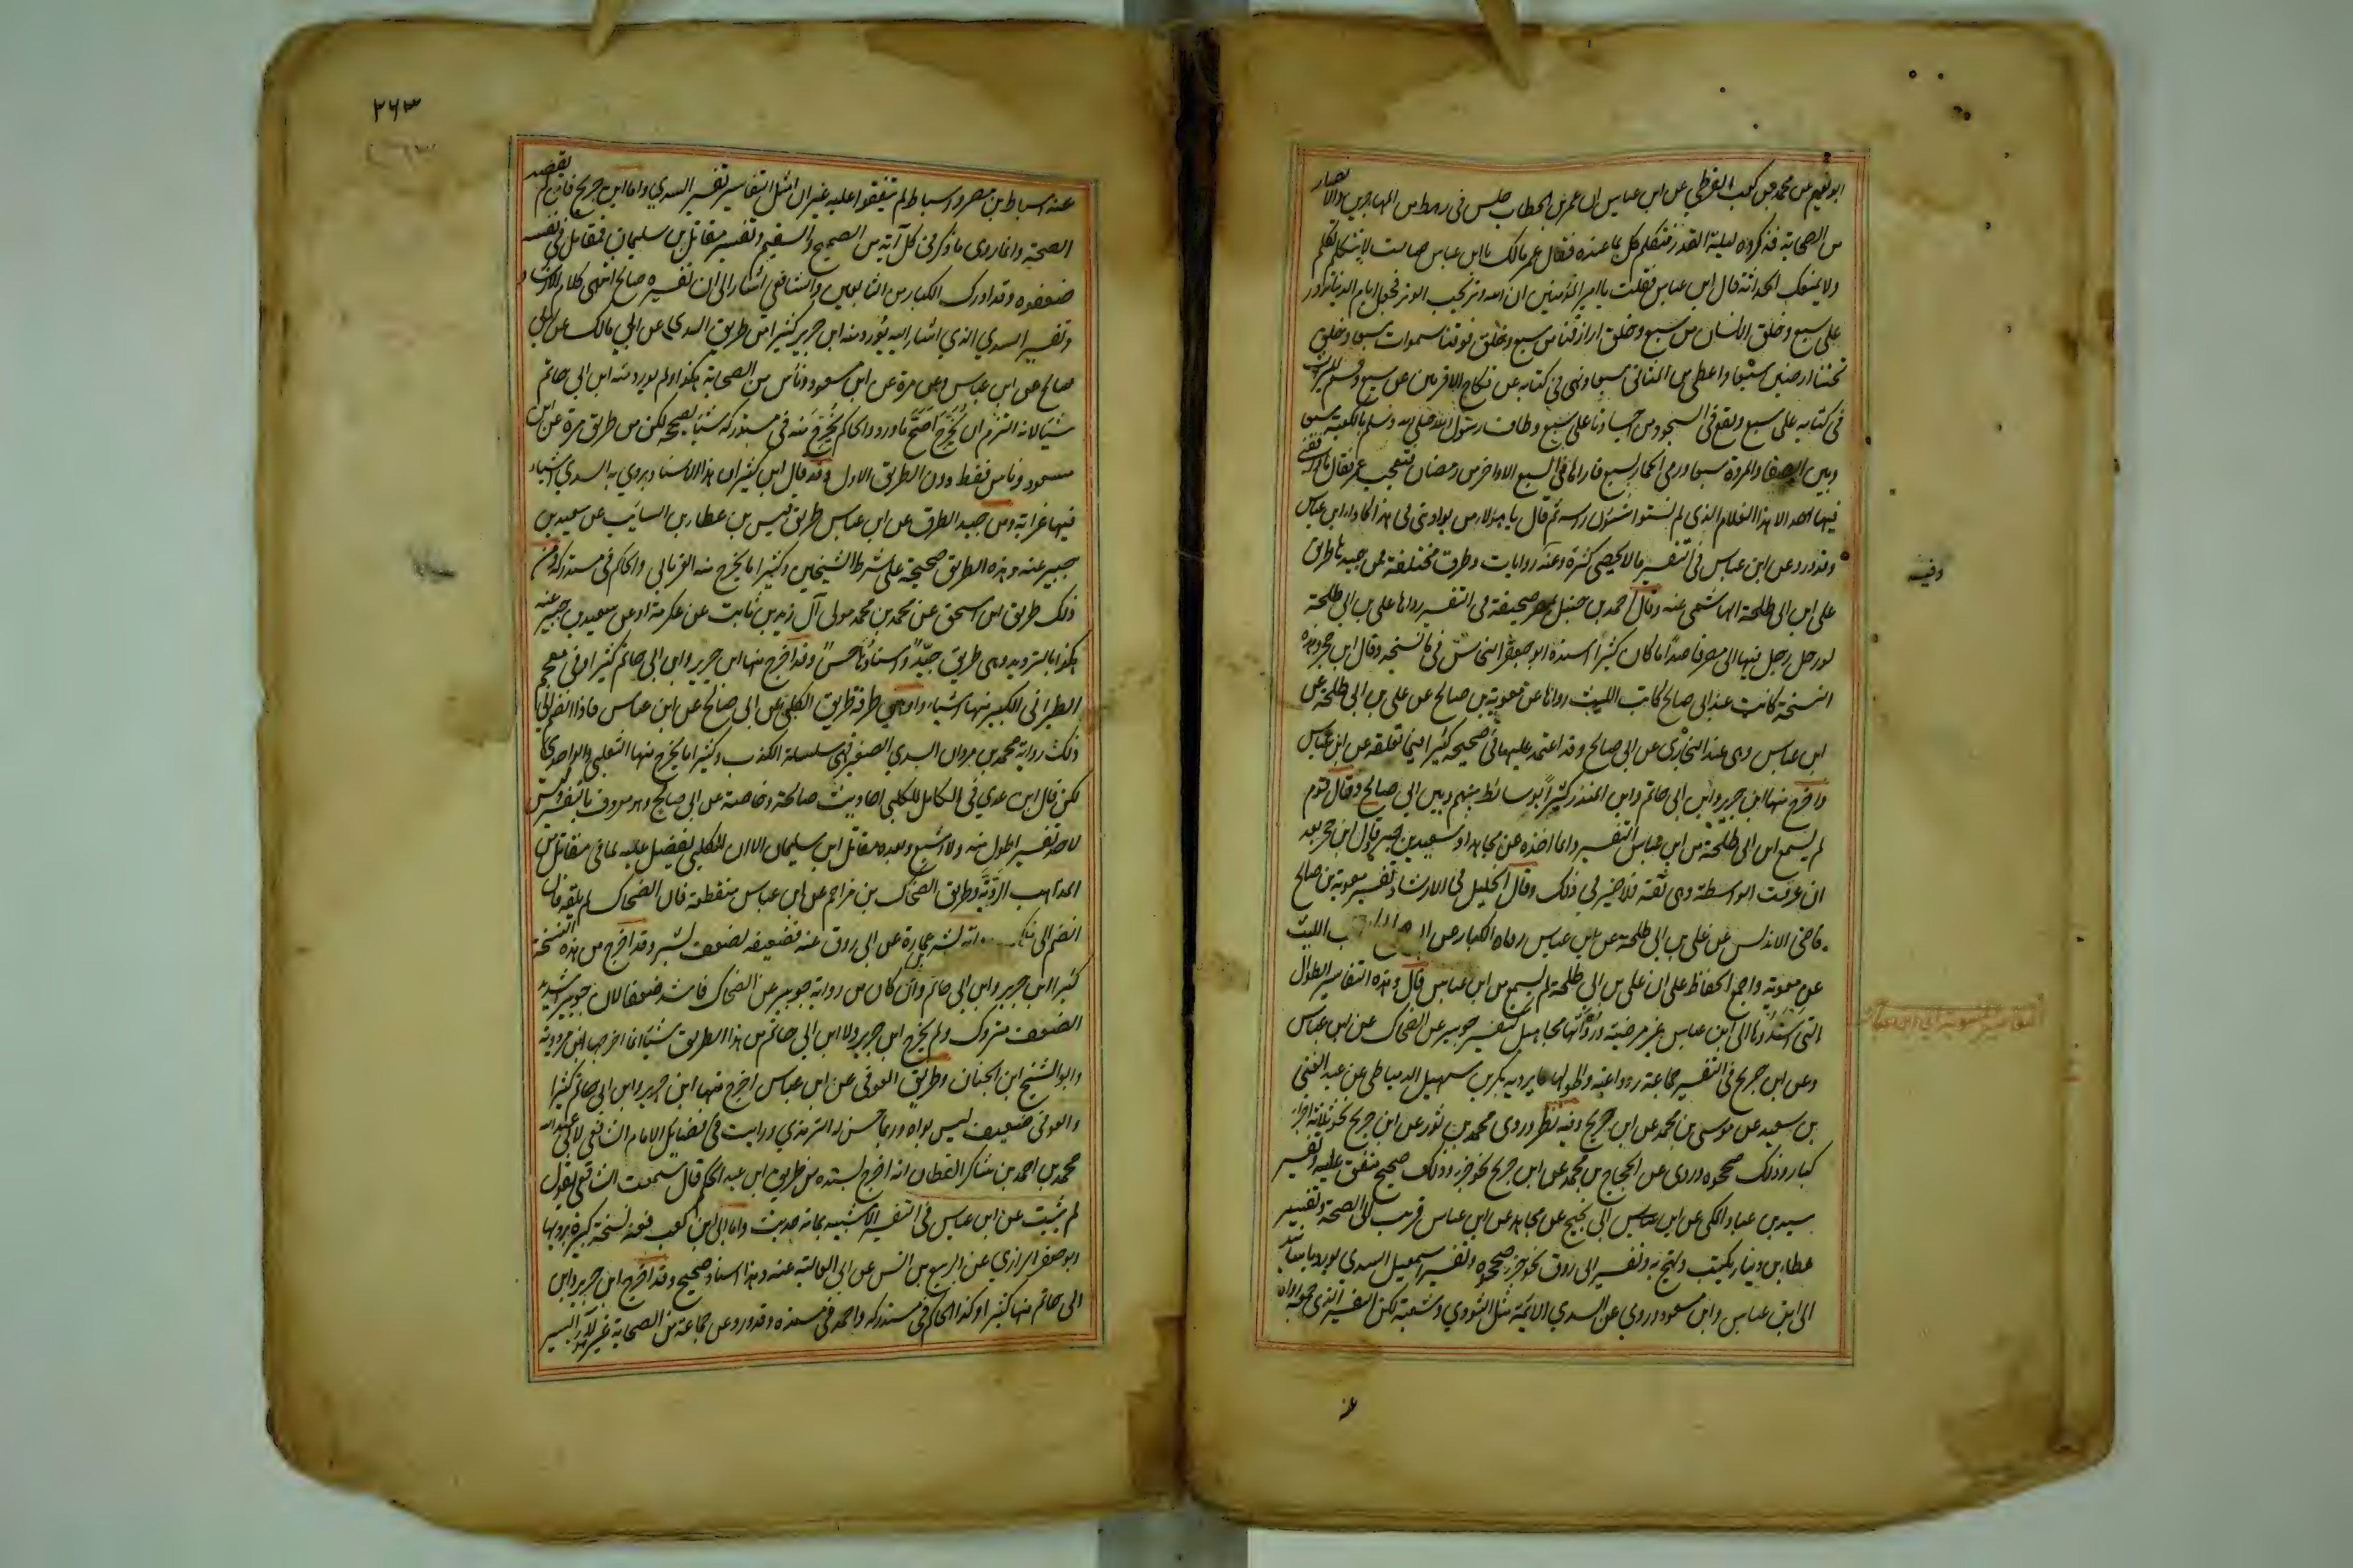 ابو نعيم عن محمد بن كعب القرظي عن ابن عباس ان عمر بن الخطاب جلس في رهط من المهاجرين والانصار
من الصحابة فذكروا ليلة القدر فتكلم كل بما عنده فقال عمر مالك يا ابن عباس صامت لا تتكلم تكلم
ولا يمنعك الحداثة قال ابن عباس فقلت يا امير المؤمنين ان الله وتر يحب الوتر فجعل ايام الدنيا تدور
على سبع وخلق الانسان من سبع وخلق ارزاقنا من سبع وخلق فوقنا سموات سبعا وخلق
تحتنا ارضين سبعا واعطى من المثاني سبعا ونهى في كتابه عن نكاح الاقربين عن سبع وقسم الميراث
في كتابه على سبع ونقع في السجود من اجسادنا على سبع وطاف رسول الله صلى الله وسلم بالكعبة سبعا
وبين الصفا والمروة سبعا ورمى الجمار لسبع فاراها في السبع الاواخر من رمضان فتعجب عمر فقال ما وافقني
فيها احد الا هذا الغلام الذي لم تستو شؤن راسه ثم قال يا هؤلاء من يؤديني في هذا كاداء ابن عباس
وقد ورد عن ابن عباس في التفسير ما لا يحصى كثرة وعنه روايات وطرق مختلفة فمن جيدها طريق
على ابن ابي طلحة الهاشمي عنه وقال احمد بن حنبل بمصر صحيفة في التفسير رواها على بن ابي طلحة
لو رحل رجل فيها الى مصر قاصدا ما كان كثيرا اسنده ابو جعفر النحاس في ناسخه وقال ابن حجر وهذه
النسخة كانت عند ابي صالح كاتب الليث رواها عن معوية بن صالح عن على بن ابي طلحة عن
ابن عباس وهي عند البخاري عن ابي صالح وقد اعتمد عليها في صحيحه كثيرا فيما تعلقه عن ابن عباس
واخرج منها ابن جرير وابن ابي حاتم وابن المنذر كثيرا بوسائط بينهم وبين ابي صالح وقال قوم
لم يسمع ابن ابي طلحة من ابن عباس التفسير وانما اخذه عن مجاهد او سعيد بن جبير قال ابن حجر بعد
ان عرفت الواسطة وهي ثقة فلا ضير في ذلك وقال الخليل في الارشاد تفسير معوية بن صالح
قاضى الاندلس عن على بن ابي طلحة عن ابن عباس رواه الكبار عن ا ب الليث
عن معوية واجمع الحفاظ على ان على بن ابي طلحة لم يسمع من ابن عباس قال وهذه التفاسير الطوال
التي اسندوها الى ابن عباس غير مرضية ورواتها مجاهيل كتفسير جويبر عن الضحاك عن ابن عباس
وعن ابن جريج في التفسير جماعة رووا عنه واطولها ما يرويه بكر بن سهيل الدمياطي عن عبد الغني
بن سعيد عن موسى بن محمد عن ابن جريج وفيه نظر وروى محمد بن ثور عن ابن جريج نحو ثلاثة اجزاء
كبار وذلك صححوه وروى عن الحجاج بن محمد عن ابن جريج نحو جزء وذلك صحيح متفق عليه وتفسير
سيد بن عباد المكي عن ابن عباس ابي نجيح عن مجاهد عن ابن عباس قريب الى الصحة وتفسير
عطاء بن دينار يكتب ويحتج به وتفسير ابي روق نحو جزء صححوه وتفسير اسمعيل السدي يورده باسانيد
الى ابن عباس وابن مسعود وروى عن السدي الائمة مثل الثوري وشعبة لكن التفسير الذي جمعه رواه
عنه
وفيه
التفاسير المنسوبة الى ابن عباس
٢٦٣
عنه اسباط بن نصر واسباط لم يتفقوا عليه غير ان امثل التفاسير تفسير السدي واما ابن جريج فانه لم يقصد
الصحة وانما روى ما ذكر في كل آية من الصحيح والسقيم وتفسير مقاتل بن سليمان فمقاتل في نفسه
ضعفوه وقد ادرك الكبار من التابعين والشافعي اشار الى ان تفسيره صالح انتهى كلام الارشاد
وتفسير السدي الذي اشار اليه يورد منه ابن جرير كثيرا من طريق السدي عن ابي مالك عن ابي
صالح عن ابن عباس وعن مرة عن ابن مسعود وناس من الصحابة هكذا ولم يورد منه ابن ابي حاتم
شيا لانه التزم ان يخرج اصح ما ورد والحاكم يخرج منه في مستدركه شيا يصححه لكن من طريق مرة عن ابن
مسعود وناس فقط دون الطريق الاول وقد قال ابن كثير ان هذا الاسناد يروي به السدي اشياء
فيها غرابة ومن جيد الطرق عن ابن عباس طريق قيس بن عطاء بن السائب عن سعيد بن
جبير عنه وهذه الطريق صحيحة على شرط الشيخين وكثيرا ما يخرج منه الفريابي والحاكم في مستدركه ومن
ذلك طريق ابن اسحق عن محمد بن محمد مولى آل زيد بن ثابت عن عكرمة او عن سعيد بن جبير عنه
هكذا بالترديد وهي طريق جيد واسنادها حسن وقد اخرج منها ابن جرير وابن ابي حاتم كثيرا وفي معجم
الطبراني الكبير منها اشياء واوهى طرقه طريق الكلبي عن ابي صالح عن ابن عباس فاذا انضم الى
ذلك رواية محمد بن مروان السدي الصغير فهي سلسلة الكذب وكثيرا ما يخرج منها الثعلبي والواحدي
لكن قال ابن عدي في الكامل للكلبي احاديث صالحة وخاصة عن ابي صالح وهو معروف بالتفسير وليس
لاحد تفسير اطول منه ولا اشبع وبعده مقاتل ابن سليمان الا ان الكلبي يفضل عليه لما في مقاتل من
المذاهب الردية وطريق الضحاك بن مزاحم عن ابن عباس منقطعة فان الضحاك لم يلقه فان
انضم الى ذلك رواية بشر بن عمارة عن ابي روق عنه فضعيفه لضعف بشر وقد اخرج من هذه النسخة
كثيرا ابن جرير وابن ابي حاتم وان كان من رواية جويبر عن الضحاك فاشد ضعفا لان جويبر شديد
الضعف متروك ولم يخرج ابن جرير ولا ابن ابي حاتم من هذا الطريق شيا انما اخرجها ابن مردويه
وابو الشيخ ابن الحبان وطريق العوفي عن ابن عباس اخرج منها ابن جرير وابن ابي حاتم كثيرا
والعوفي ضعيف ليس بواه وربما حسن له الترمذي ورايت في فضايل الامام الشافعي لابي عبد الله
محمد بن احمد بن شاكر القطان انه اخرج بسنده من طريق ابن عبد الحكم قال سمعت الشافعي يقول
لم يثبت عن ابن عباس في التفسير الا شبيه بمائة حديث واما ابي ابن كعب فعنه نسخة كبيرة يرويها
ابو جعفر الرازي عن الربيع بن انس عن ابي العالية عنه وهذا اسناد صحيح وقد اخرج ابن جرير وابن
ابي حاتم منها كثيرا وكذا الحاكم في مستدركه واحمد في مسنده وقد ورد عن جماعة من الصحابة غير هؤلاء اليسير